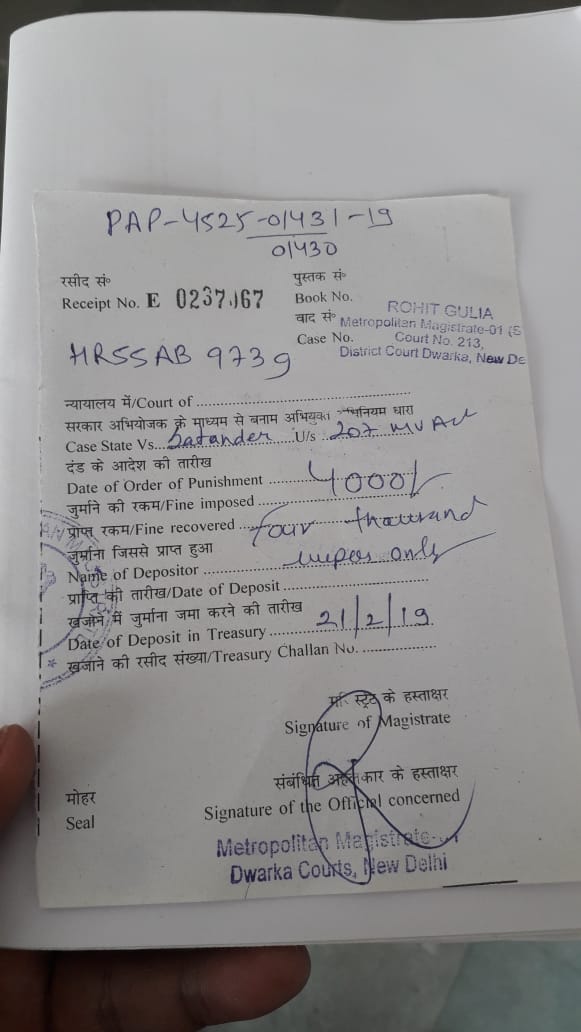 PAP-4525-01431-19
01430
रसीद सं०
Receipt No. E 0237067
पुस्तक सं०
Book No.
वाद सं०
Case No.
ROHIT GULIA
Metropolitan Magistrate-01 (S
Court No. 213,
District Court Dwarka, New De
HR55AB 9739
न्यायालय में/Court of
सरकार अभियोजक के माध्यम से बनाम अभियुक्त धिनियम धारा
Case State Vs. Satander U/s 207 MV Act
दंड के आदेश की तारीख
Date of Order of Punishment
4000/-
जुर्माने की रकम/Fine imposed
प्राप्त रकम/Fine recovered four thousand
जुर्माना जिससे प्राप्त हुआ
Name of Depositor rupees only
प्राप्ति की तारीख/Date of Deposit
खजाने में जुर्माना जमा करने की तारीख
Date of Deposit in Treasury 21/2/19
खजाने की रसीद संख्या/Treasury Challan No.
के हस्ताक्षर
Signature of Magistrate
संबंधित अहलकार के हस्ताक्षर
Signature of the Official concerned
मोहर
Seal
Metropolitan Magistrate-01
Dwarka Courts, New Delhi